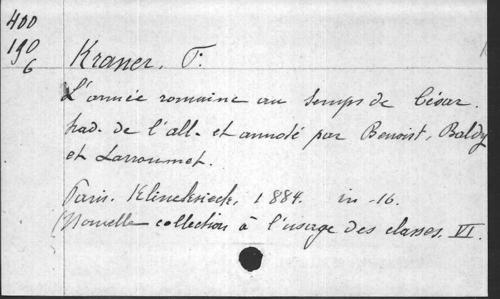 400
190
6
Kraner, F.
L'armée romaine au temps de César.
trad. de l'all. et annoté par Benoist, Baldy
et Larroumet.
Paris. Klincksieck, 1884. in-16.
(Nouvelle collection à l'usage des classes. VI.